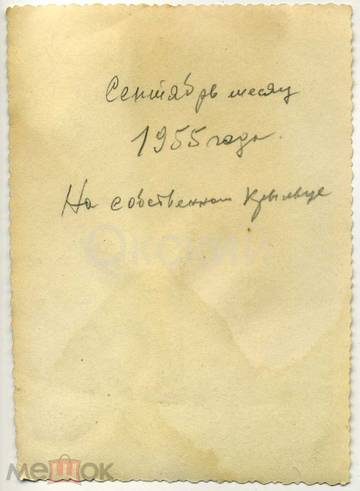 Сентябрь месяц
1955 года.
На собственном крыльце
мешок